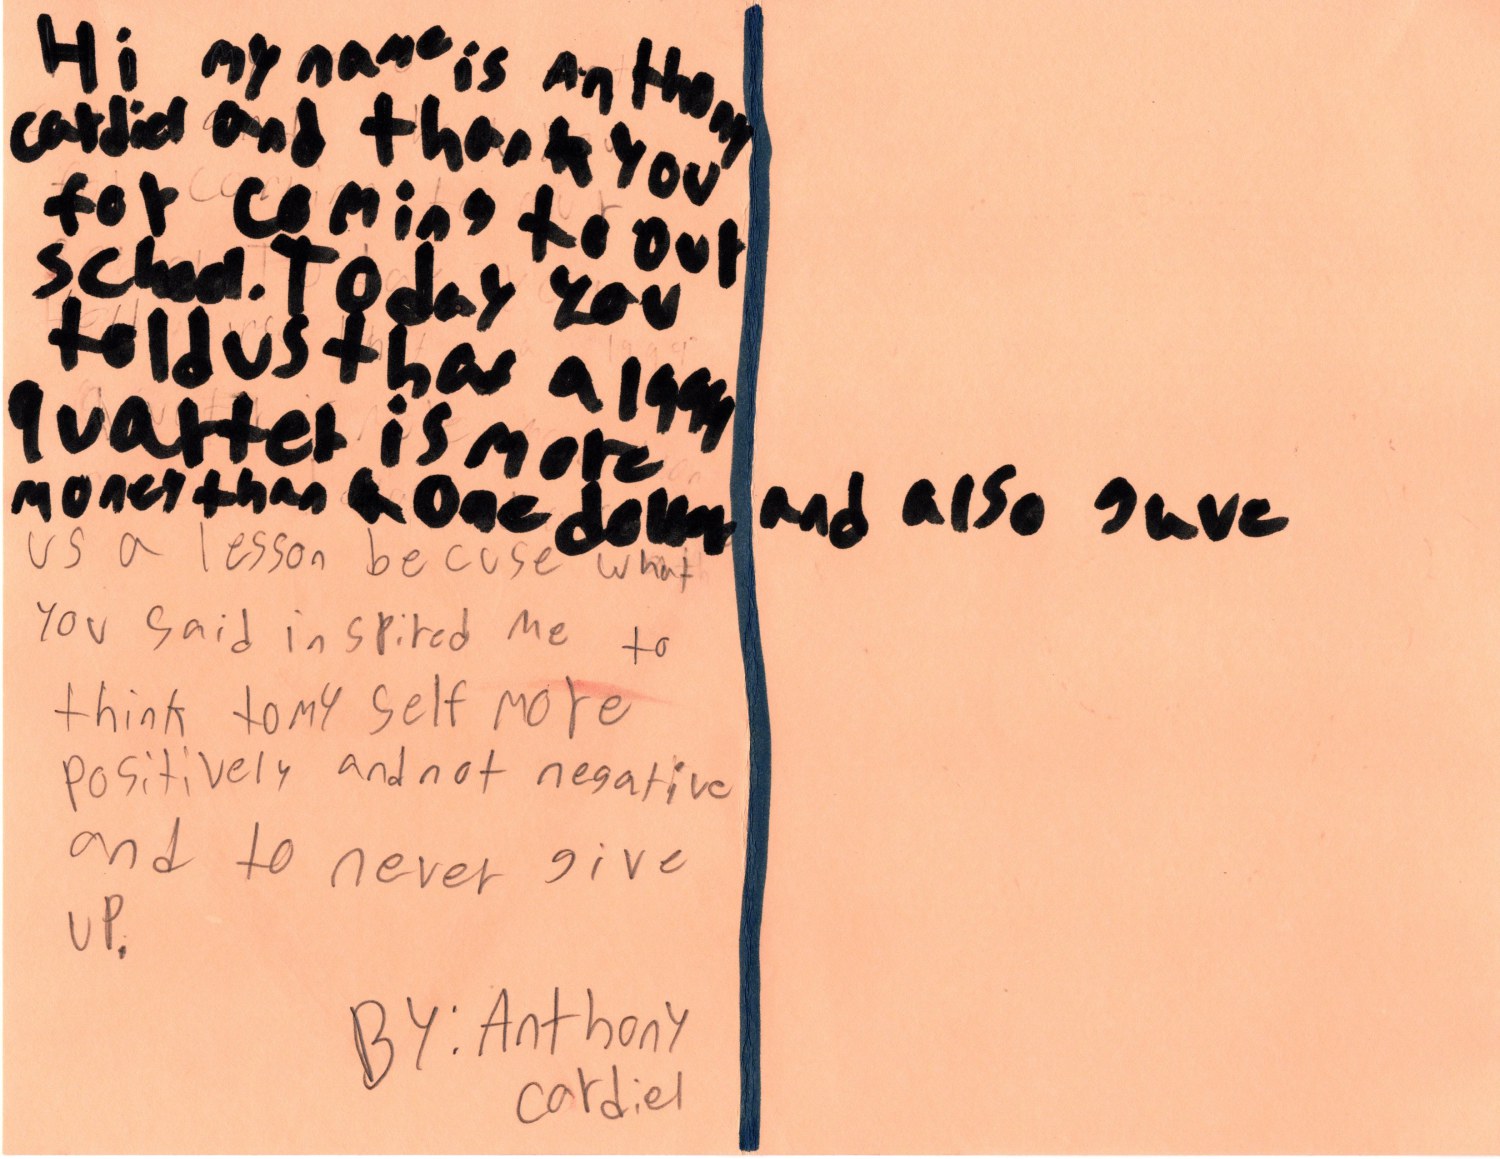 Hi my name is Anthony
cardiel and thank you
for coming to our
school. Today you
told us that a 1999
quarter is more
money than a one dollar and also gave
us a lesson becuse what
you said inspired me to
think to my self more
positively and not negative
and to never give
up.
BY: Anthony
cardiel